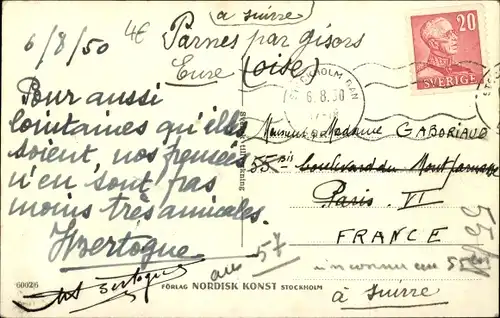 à suivre
6/8/50
4€
Parnes par gisors
Eure (oise)
20
SVERIGE
STOCKHOLM BAN
6.8.50
Pour aussi
lointaines qu'elles
soient nos pensées
n'en sont pas
moins très amicales.
Monsieur Madame GABORIAUD
55 bis boulevard du Montparnasse
Paris VI
FRANCE
au 57
inconnu au 55 bis
à suivre
60026
FÖRLAG NORDISK KONST STOCKHOLM